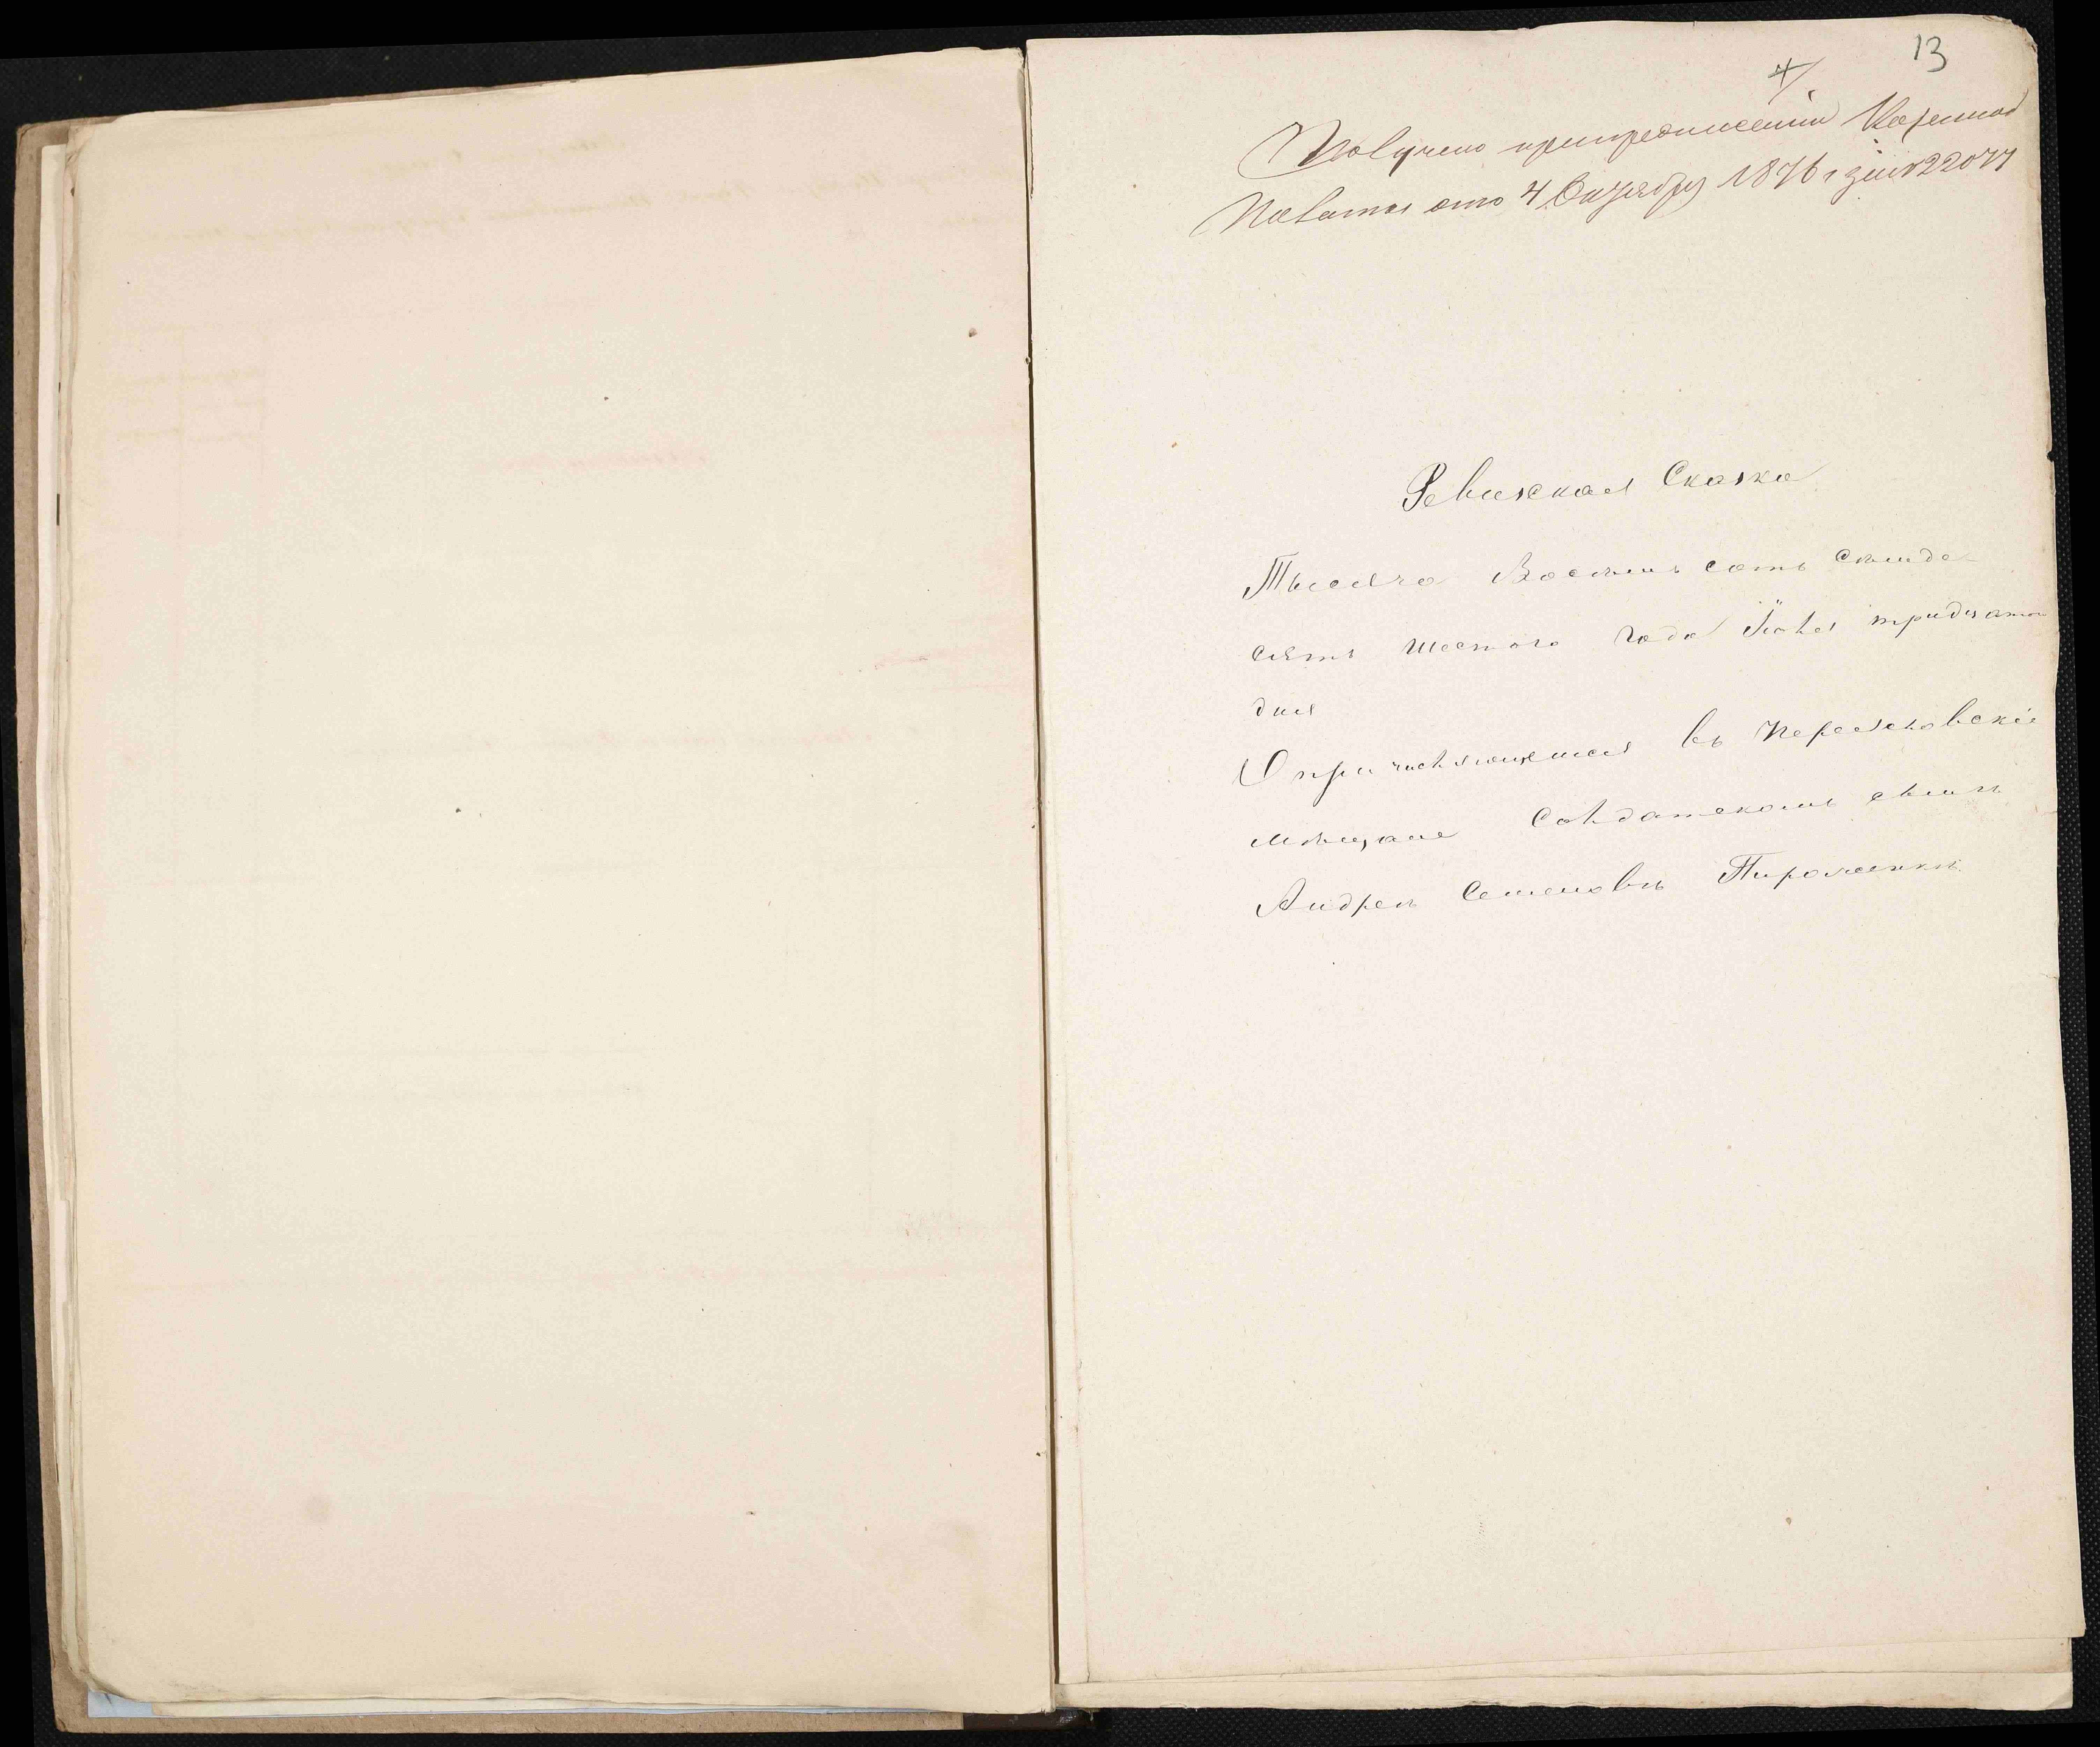 13
4/
Получено припредписаніи Казенной
Палаты отъ 4 Октября 1876 г за № 22077
Ревизская Сказка
Тысяча Восемь сотъ Семьде-
сятъ Шестого Года Іюля тридцатого
дня
О причисляющемся въ Переясловскіе
мѣщане Солдатскомъ сынѣ
Андреѣ Семеновѣ